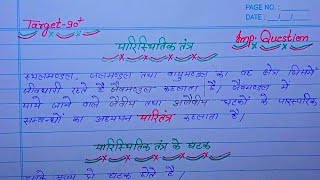 PAGE NO. :
DATE : / /
Target-90+
Imp. Question
पारिस्थितिक तंत्र
स्थलमण्डल, जलमण्डल तथा वायुमण्डल का वह क्षेत्र जिसमें
जीवधारी रहते हैं जैवमण्डल कहलाता है। जैवमण्डल में
पाये जाने वाले जैवीय तथा अजैवीय घटकों के पारस्परिक
सम्बन्धों का अध्ययन पारितंत्र कहलाता है।
पारिस्थितिक तंत्र के घटक
इसके मुख्य दो घटक होते हैं।